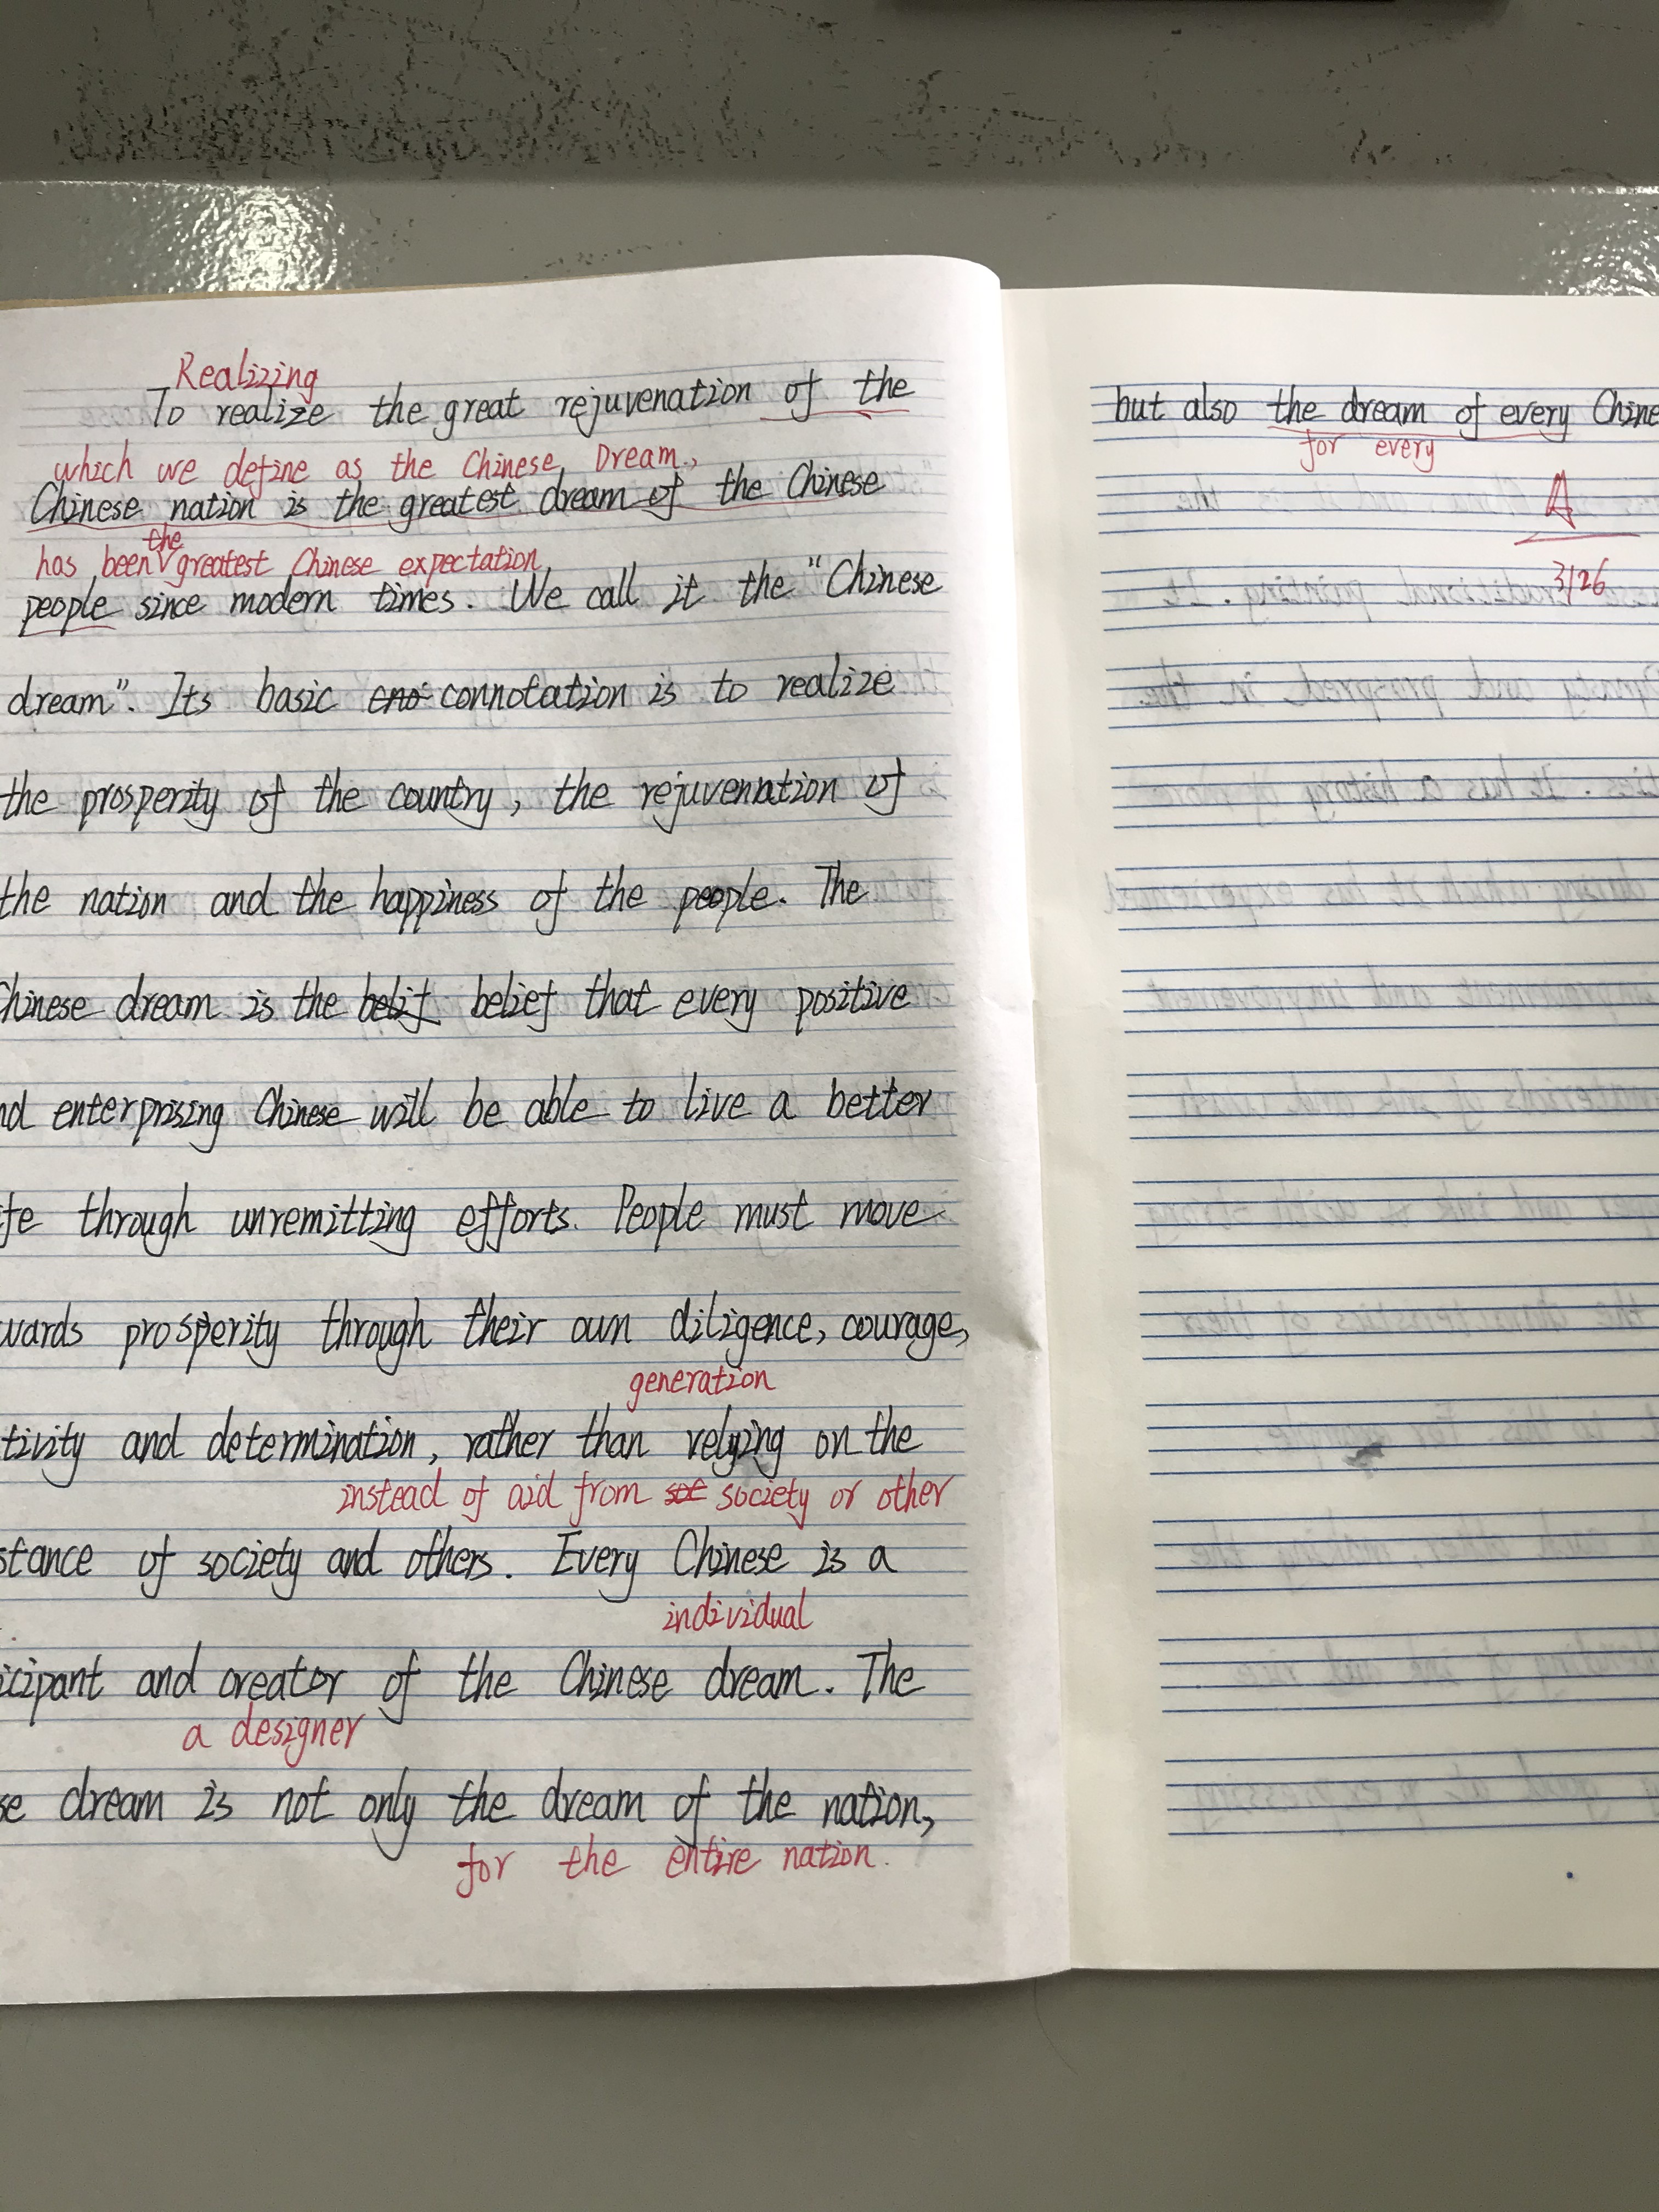 Realizing
To realize the great rejuvenation of the
which we define as the Chinese Dream,
Chinese nation is the greatest dream of the Chinese
the
has been greatest Chinese expectation
people since modern times. We call it the "Chinese
dream". Its basic connotation is to realize
the prosperity of the country, the rejuvenation of
the nation and the happiness of the people. The
Chinese dream is the belief that every positive
nd enterprising Chinese will be able to live a better
ife through unremitting efforts. People must move
wards prosperity through their own diligence, courage,
generation
tivity and determination, rather than relying on the
instead of aid from society or other
stance of society and others. Every Chinese is a
individual
icipant and creator of the Chinese dream. The
a designer
se dream is not only the dream of the nation,
for the entire nation.
but also the dream of every Chine
for every
A
3/26